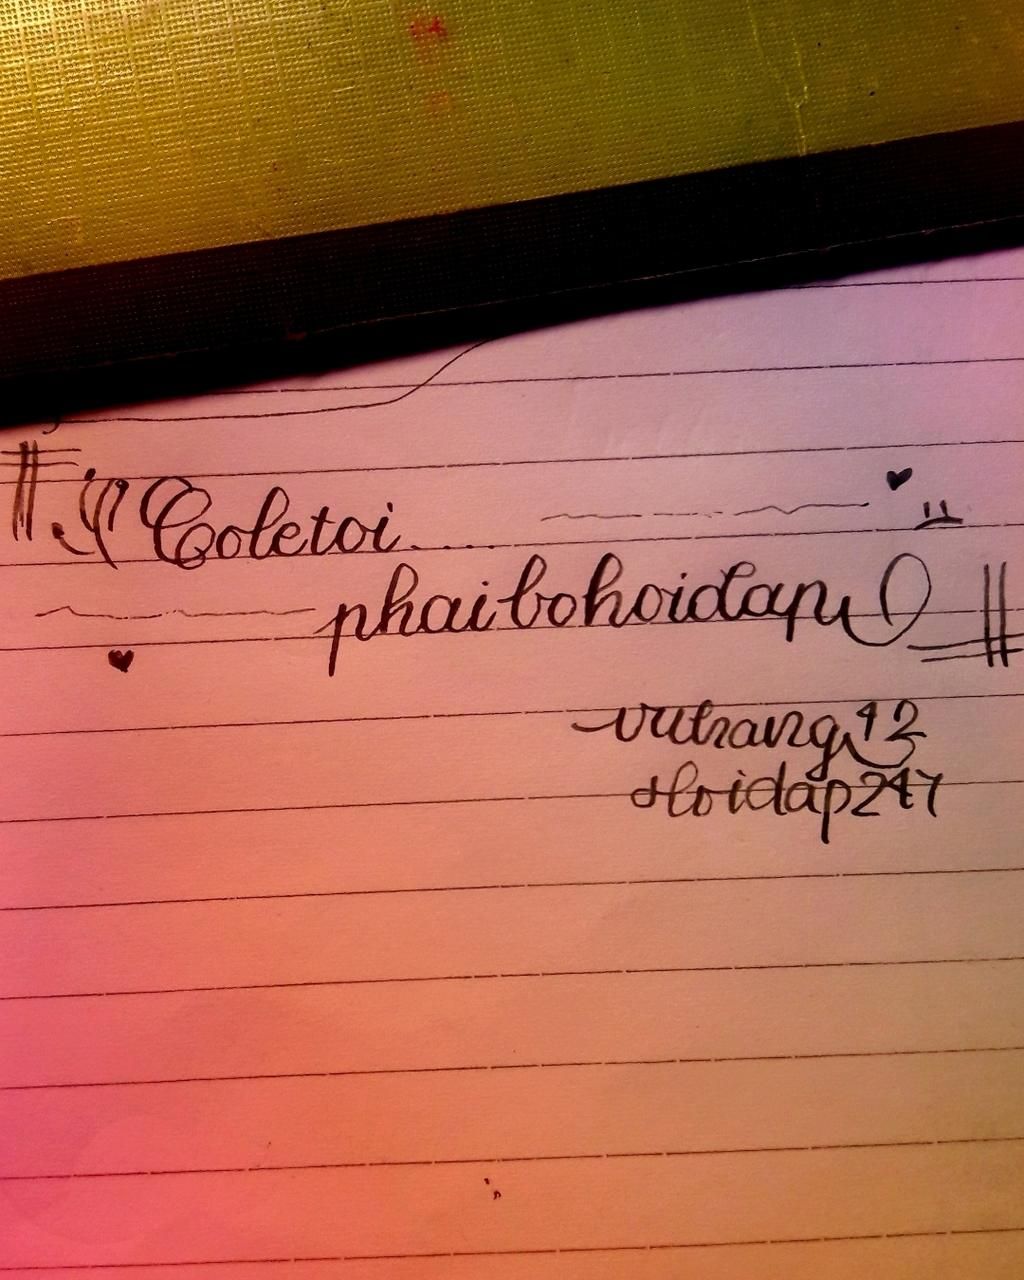 Coletoi.....
phaibohoidap
vuthang12
Hoidap247